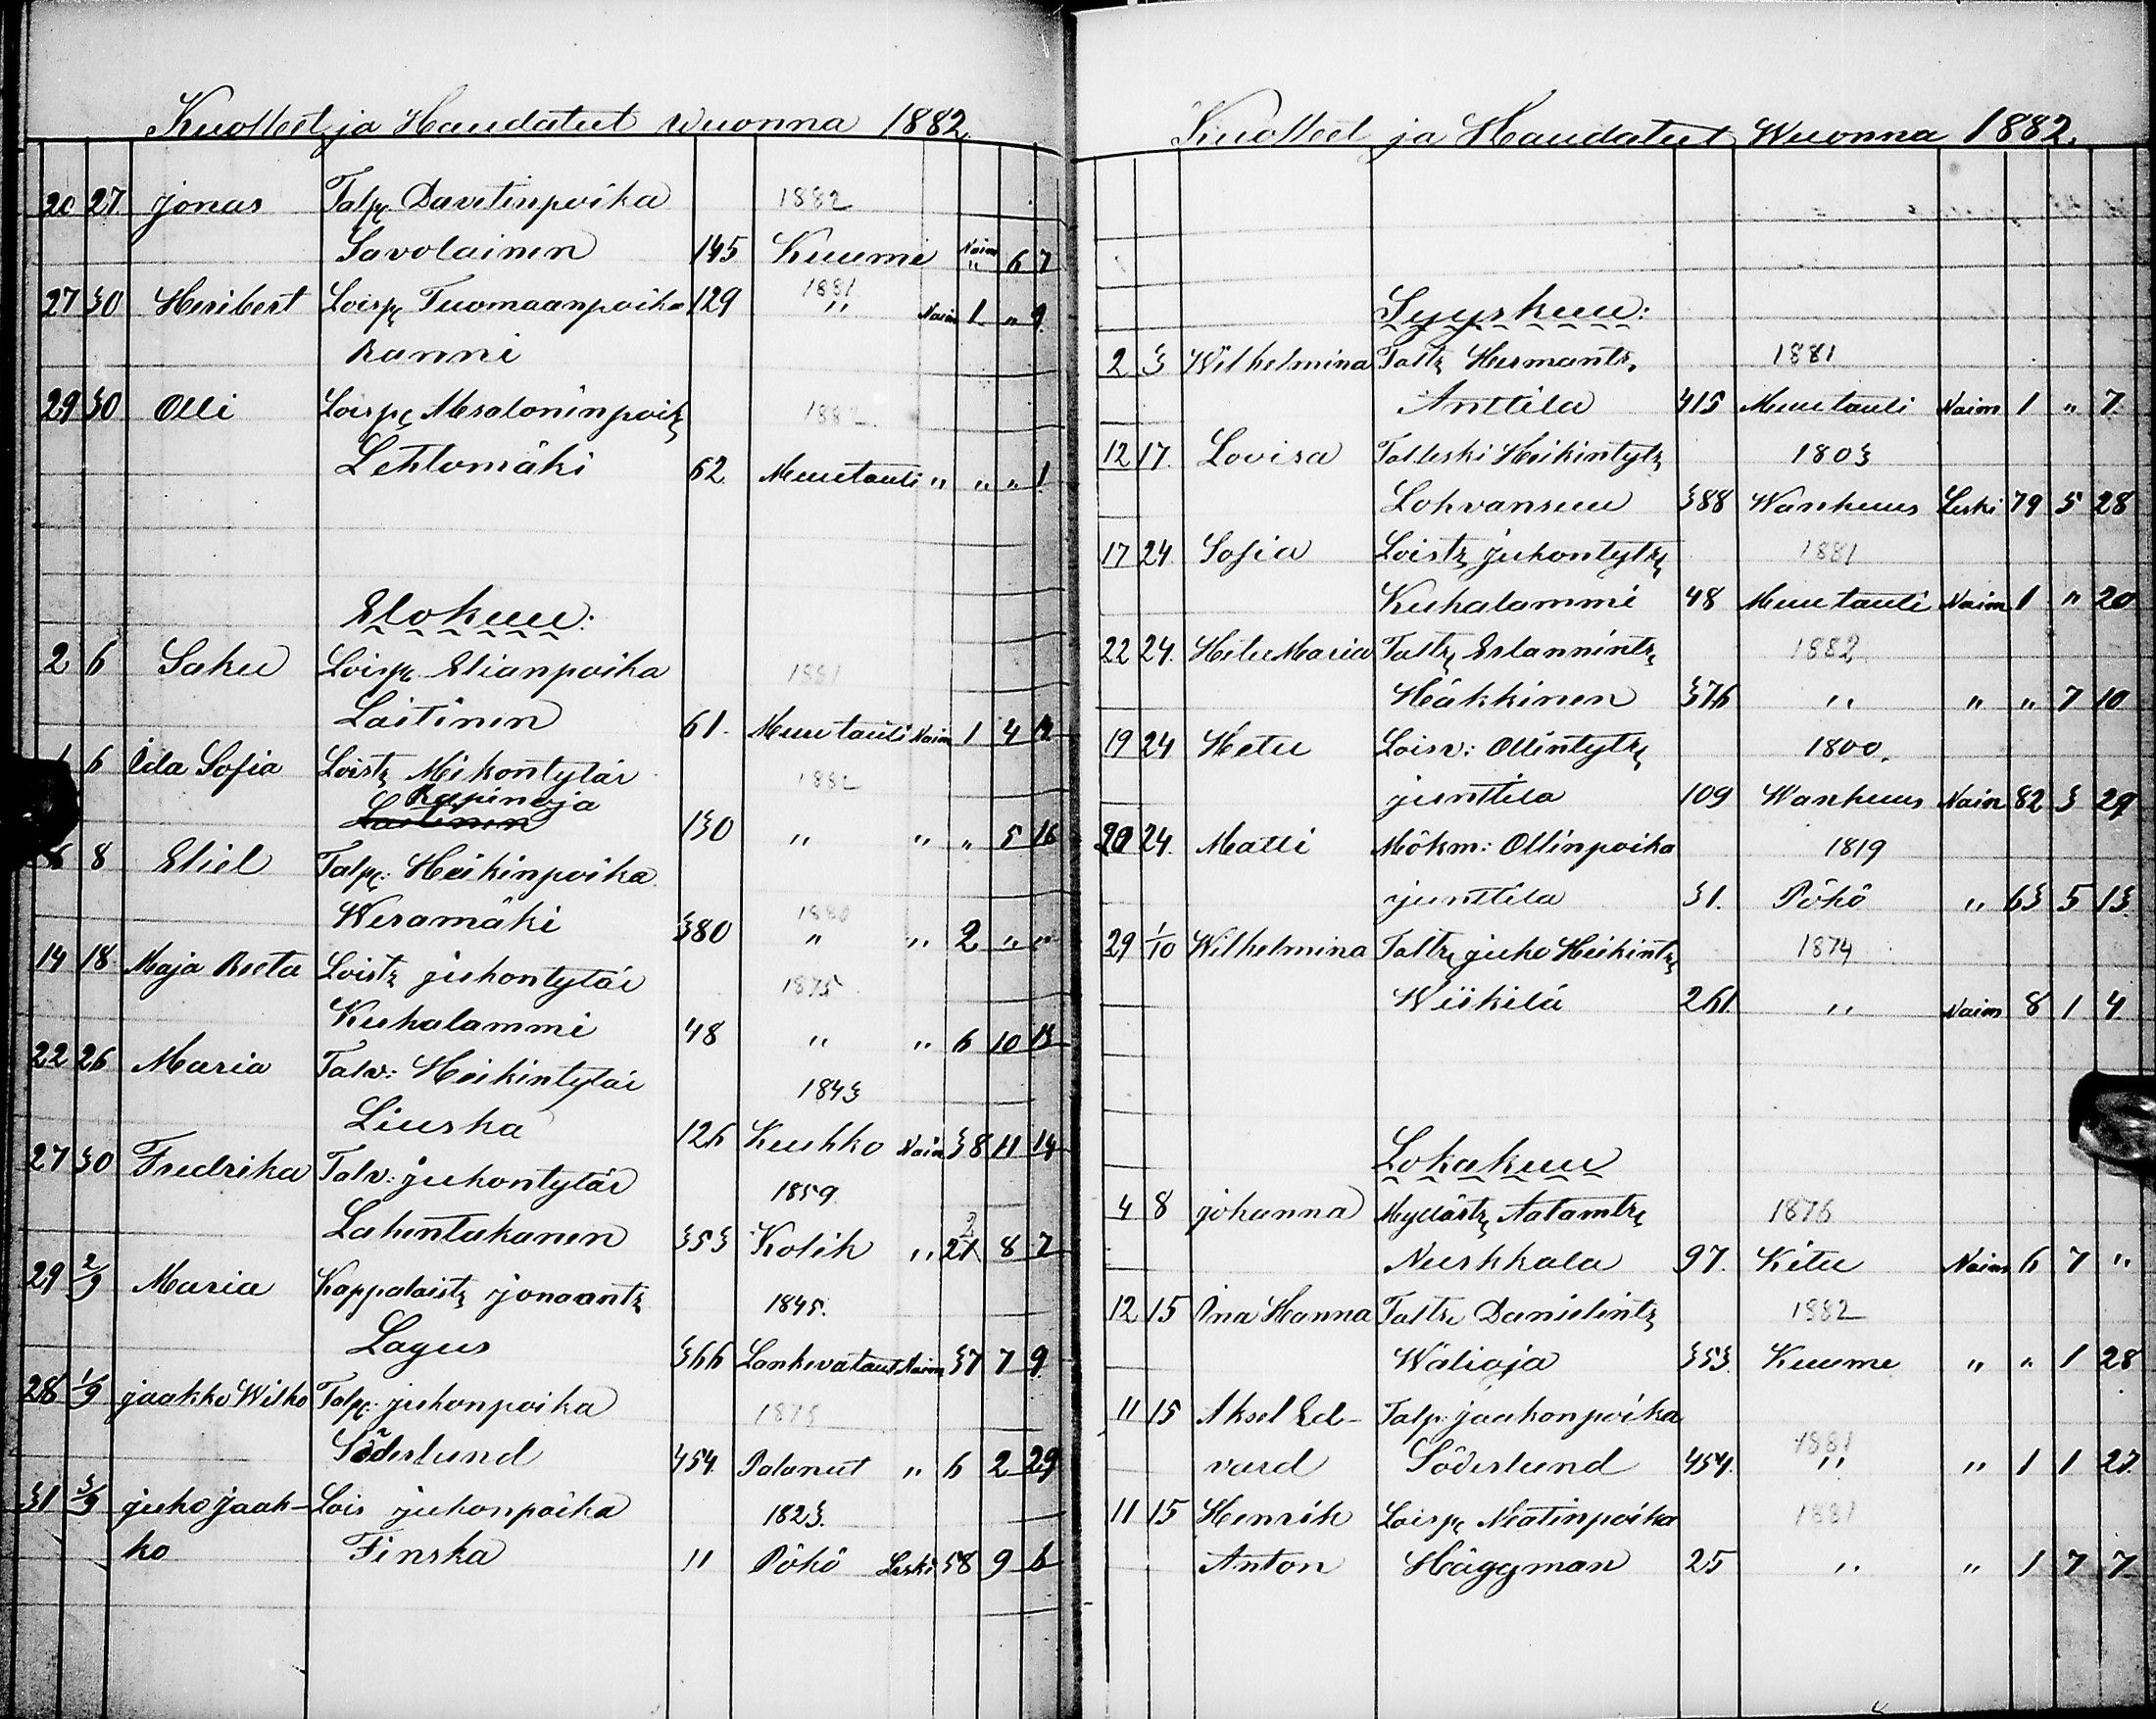 Kuolleet ja Haudatut wuonna 1882.
20 27. Jonas Talp. Davetinpoika 1882
Savolainen 145 Kuume Naim " 6 7
27 30 Heribert Loisp. Tuomaanpoika 129 1881 " Naim 1 " 9
Ranni
29 30 Olli Loisp. 1882.
Lehtomäki 62. Muutauti " " " 1
Elokuu:
2 6 Saku Loisp. Elianpoika 1881
Laitinen 61. Muutauti Naim 1 4 12
1 6 Ida Sofia Loistr. Meikontytär 1882
Rapinoja
Laitinen 130 " " " 5 16
6 8 Eliel Talp: Heikinpoika
Weramäki 380 1880 " " 2 " "
14 18 Maja Reeta Loistr Juhontytär 1875
Kuhalammi 48 " " 6 10 13
22 26 Maria Talv: Heikintytär 1843
Liuska 126 Keuhko Naim 38 11 14
27 30 Fredrika Talv: Juhontytär 1859.
Lahentakanen 353 Kolik " 22 8 7
29 2/9 Maria Kappalaistr Jonaantr 1845.
Lagus 366 Lankevataut Naim 37 7 9
28 1/9 Jaakko Wilho Talp: Juhonpoika 1876
Söderlund 454 Palanut " 6 2 29
31 3/9 Juho Jaak- Lois Juhonpoika 1823.
ko Finska 11 Pöhö Leski 58 9 6
Kuolleet ja Haudatut Wuonna 1882.
Syyskuu:
2 3 Wilhelmina Taltr Hermantr. 1881
Anttila 415 Muutauti Naim 1 " 7
12 17. Lovisa Talleski Heikintytr 1803
Lohvansuu 388 Wanhuus Leski 79 5 28
17 24. Sofia Loistr Juhontytr 1881
Kuhalammi 48 Muutauti Naim 1 " 20
22 24. Hetu Maria Taltr Erlannintr 1882
Häkkinen 376 " " " 7 10
19 24 Hetu Loisv: Ollintytr 1800.
Junttila 109 Wanhuus Naim 82 3 29
20 24. Matti Mökm: Ollinpoika 1819
Junttila 31. Pöhö " 63 5 13
29 1/10 Wilhelmina Taltr Juho Heikintr 1874
Wiikilä 261. " Naim 8 1 4
Lokakuu
4 8 Johanna Myllärtr Aatamtr 1876
Nurkkala 97. Kitu Naim 6 7 "
12 15 Ina Hanna Taltr Danielintr 1882
Wälioja 353. Kuume " " 1 28
11 15 Aksel Ed- Talp. Jaakonpoika
vard Söderlund 454. 1881 " " 1 1 27
11 15 Henrik Loisp. Matinpoika 1881
Anton Häggman 25 " " 1 7 7